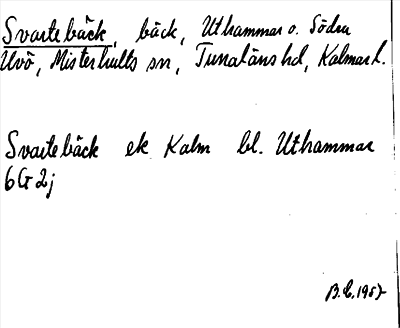 Svartebäck, bäck, Uthammar o. Södra
Uvö, Misterhults sn, Tunaläns hd, Kalmar l.
Svartebäck ek Kalm bl. Uthammar
6G2j